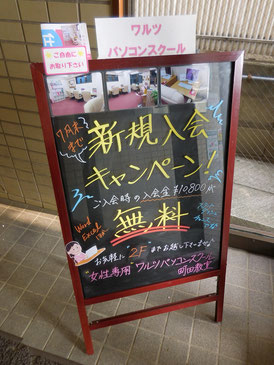 ワルツ
パソコンスクール
ご自由に
お取り下さい
7月末
まで
新規入会
キャンペーン!
ご入会時の入会金¥10,800が
無料
Word
Excel
お気軽に 2Fまでお越し下さいませ
女性専用 ワルツパソコンスクール
町田教室